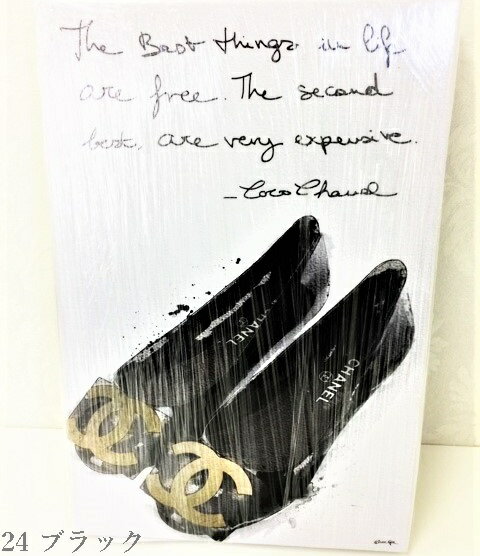 The Best things in life
are free. The second
best are very expensive.
- Coco Chanel
CHANEL
CHANEL
24 ブラック